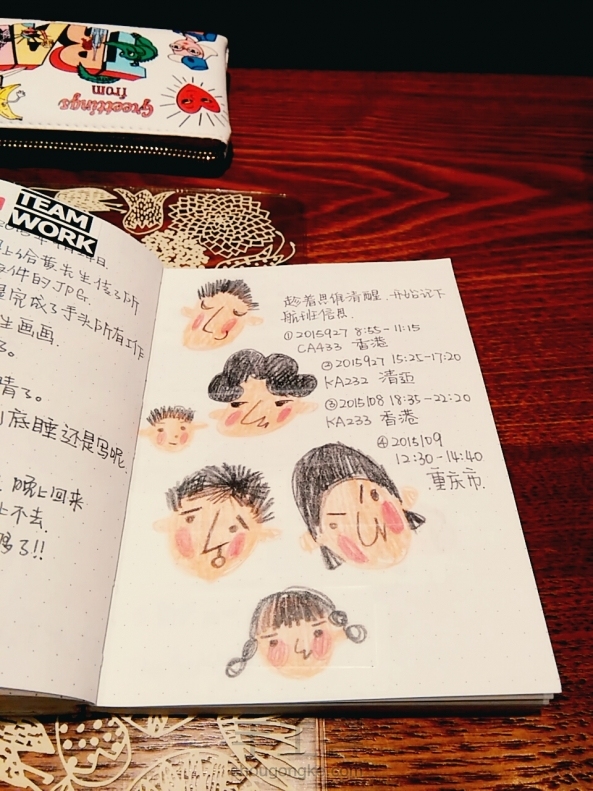 Greetings
from
TEAM
WORK
上给黄先生传了所
文件的JPG.
是完成了手头所有工作
生画画.
了。
晴了。
到底睡还是写呢.
晚上回来
上不去.
够了!!
趁着思维清醒,开始记下
航班信息.
①2015927 8:55-11:15
CA433 香港
②2015927 15:25-17:20
KA232 清迈
③2015108 18:35-22:20
KA233 香港
④2015109
12:30-14:40
重庆市.